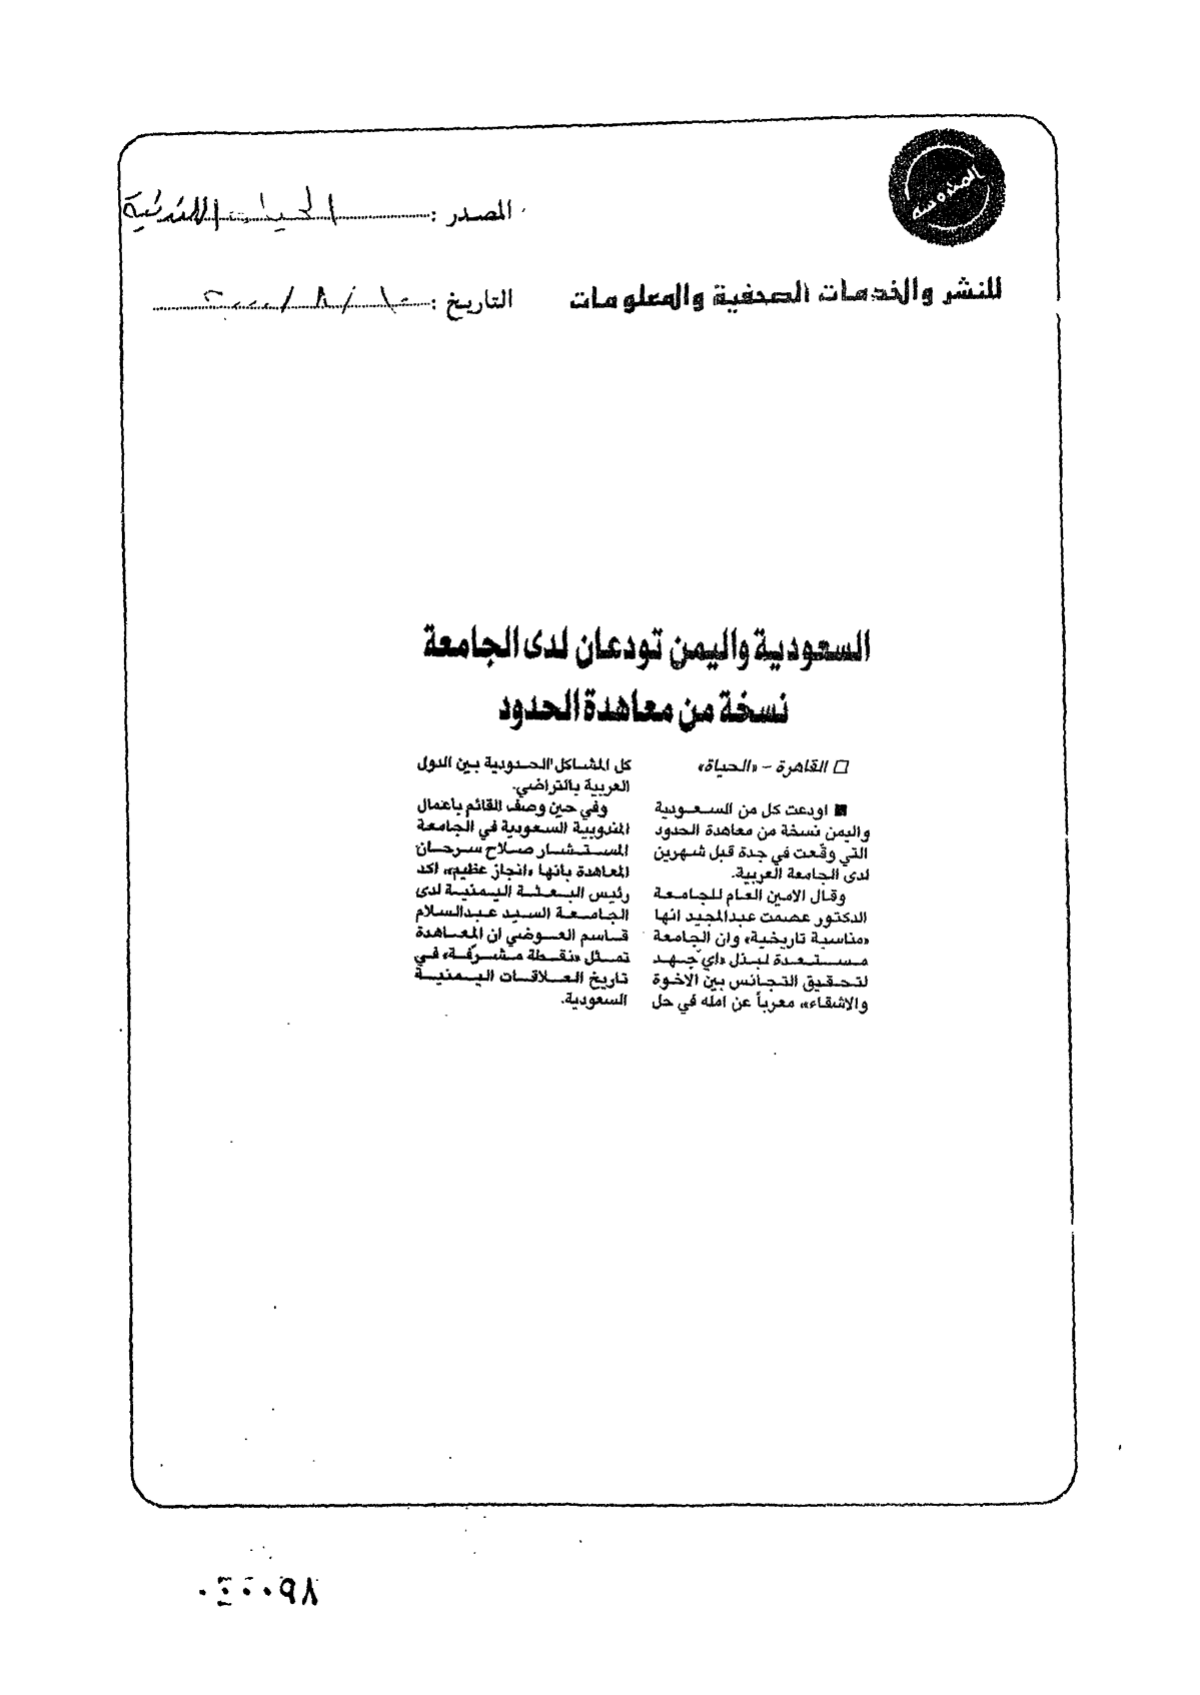 المصدر : الحياة اللندنية
للنشر والخدمات الصحفية والمعلومات
التاريخ : ١٠ / ٨ / ٢٠٠٠
السعودية واليمن تودعان لدى الجامعة
نسخة من معاهدة الحدود
□ القاهرة - «الحياة»
■ اودعت كل من السعودية
واليمن نسخة من معاهدة الحدود
التي وقّعت في جدة قبل شهرين
لدى الجامعة العربية.
وقال الامين العام للجامعة
الدكتور عصمت عبدالمجيد انها
«مناسبة تاريخية» وان الجامعة
مستعدة لبذل «اي جهد
لتحقيق التجانس بين الاخوة
والاشقاء»، معرباً عن امله في حل
كل المشاكل الحدودية بين الدول
العربية بالتراضي.
وفي حين وصف القائم باعمال
المندوبية السعودية في الجامعة
المستشار صلاح سرحان
المعاهدة بانها «انجاز عظيم»، اكد
رئيس البعثة اليمنية لدى
الجامعة السيد عبدالسلام
قاسم العوضي ان المعاهدة
تمثل «نقطة مشرّفة» في
تاريخ العلاقات اليمنية
السعودية.